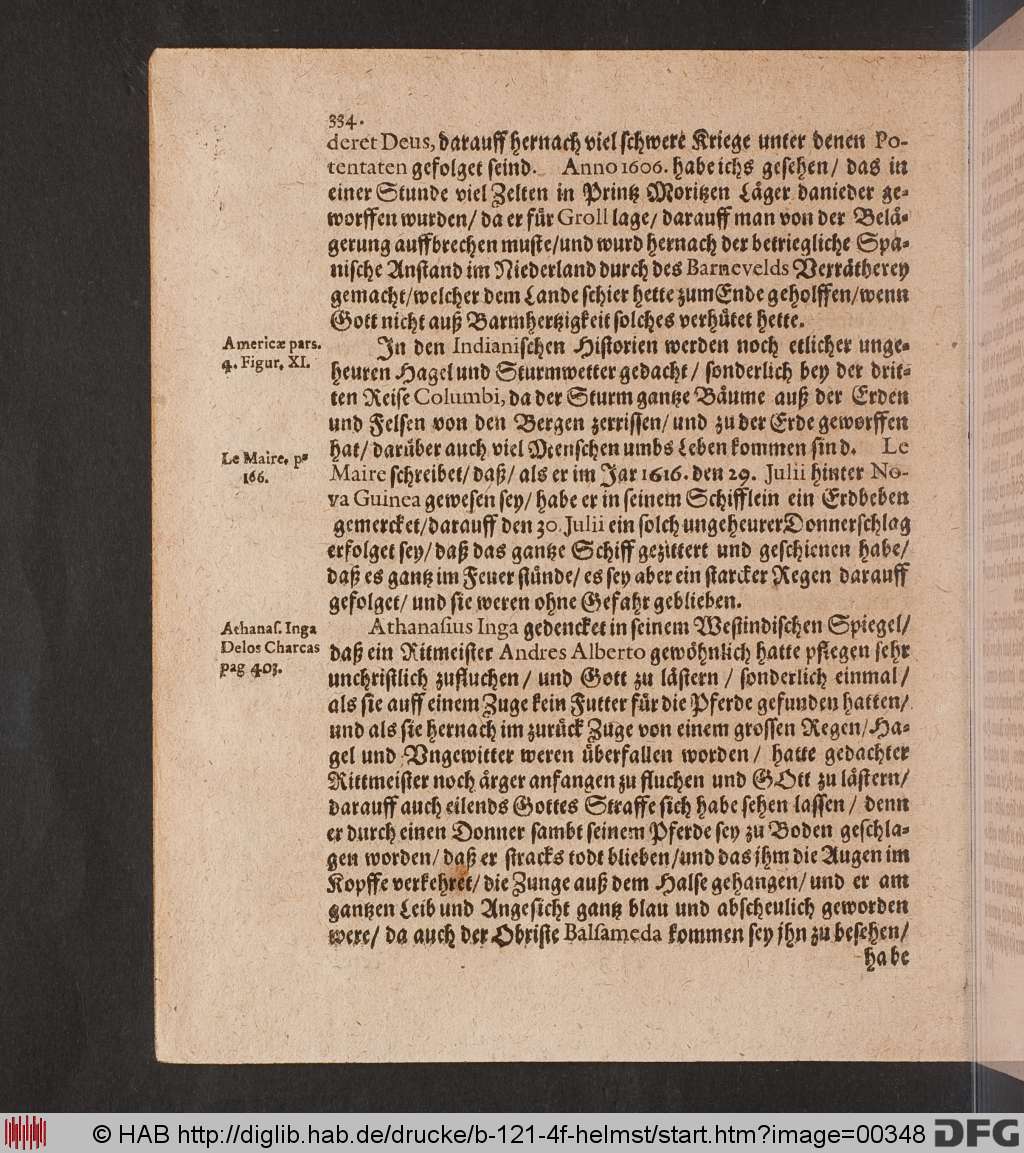 334.
deret Deus, darauff hernach viel schwere Kriege unter denen Po-
tentaten gefolget seind. Anno 1606. habe ichs gesehen/ das in
einer Stunde viel Zelten in Printz Moritzen Läger danieder ge-
worffen wurden/ da er für Groll lage/ darauff man von der Belä-
gerung auffbrechen muste/und wurd hernach der betriegliche Spa-
nische Anstand im Niederland durch des Barnevelds Verrätherey
gemacht/welcher dem Lande schier hette zum Ende geholffen/wenn
Gott nicht auß Barmhertzigkeit solches verhütet hette.
Americæ pars.
4. Figur. XI.
In den Indianischen Historien werden noch etlicher unge-
heuren Hagel und Sturmwetter gedacht/ sonderlich bey der drit-
ten Reise Columbi, da der Sturm gantze Bäume auß der Erden
und Felsen von den Bergen zerrissen/ und zu der Erde geworffen
hat/ darüber auch viel Menschen umbs Leben kommen sind. Le
Le Maire. p-
166.
Maire schreibet/ daß/ als er im Jar 1616. den 29. Julii hinter No-
va Guinea gewesen sey/ habe er in seinem Schifflein ein Erdbeben
gemercket/darauff den 30. Julii ein solch ungeheurer Donnerschlag
erfolget sey/ daß das gantze Schiff gezittert und geschienen habe/
daß es gantz im Feuer stünde/ es sey aber ein starcker Regen darauff
gefolget/ und sie weren ohne Gefahr geblieben.
Athanas. Inga
Delos Charcas
pag 403.
Athanasius Inga gedencket in seinem Westindischen Spiegel/
daß ein Ritmeister Andres Alberto gewöhnlich hatte pflegen sehr
unchristlich zufluchen/ und Gott zu lästern/ sonderlich einmal/
als sie auff einem Zuge kein Futter für die Pferde gefunden hatten/
und als sie hernach im zurück Zuge von einem grossen Regen/Ha-
gel und Vngewitter weren überfallen worden/ hatte gedachter
Rittmeister noch ärger anfangen zu fluchen und GOtt zu lästern/
darauff auch eilends Gottes Straffe sich habe sehen lassen/ denn
er durch einen Donner sambt seinem Pferde sey zu Boden geschla-
gen worden/ daß er stracks todt blieben/und das jhm die Augen im
Kopffe verkehret/ die Zunge auß dem Halse gehangen/ und er am
gantzen Leib und Angesicht gantz blau und abscheulich geworden
were/ da auch der Obriste Balsameda kommen sey jhn zu besehen/
habe
© HAB http://diglib.hab.de/drucke/b-121-4f-helmst/start.htm?image=00348 DFG